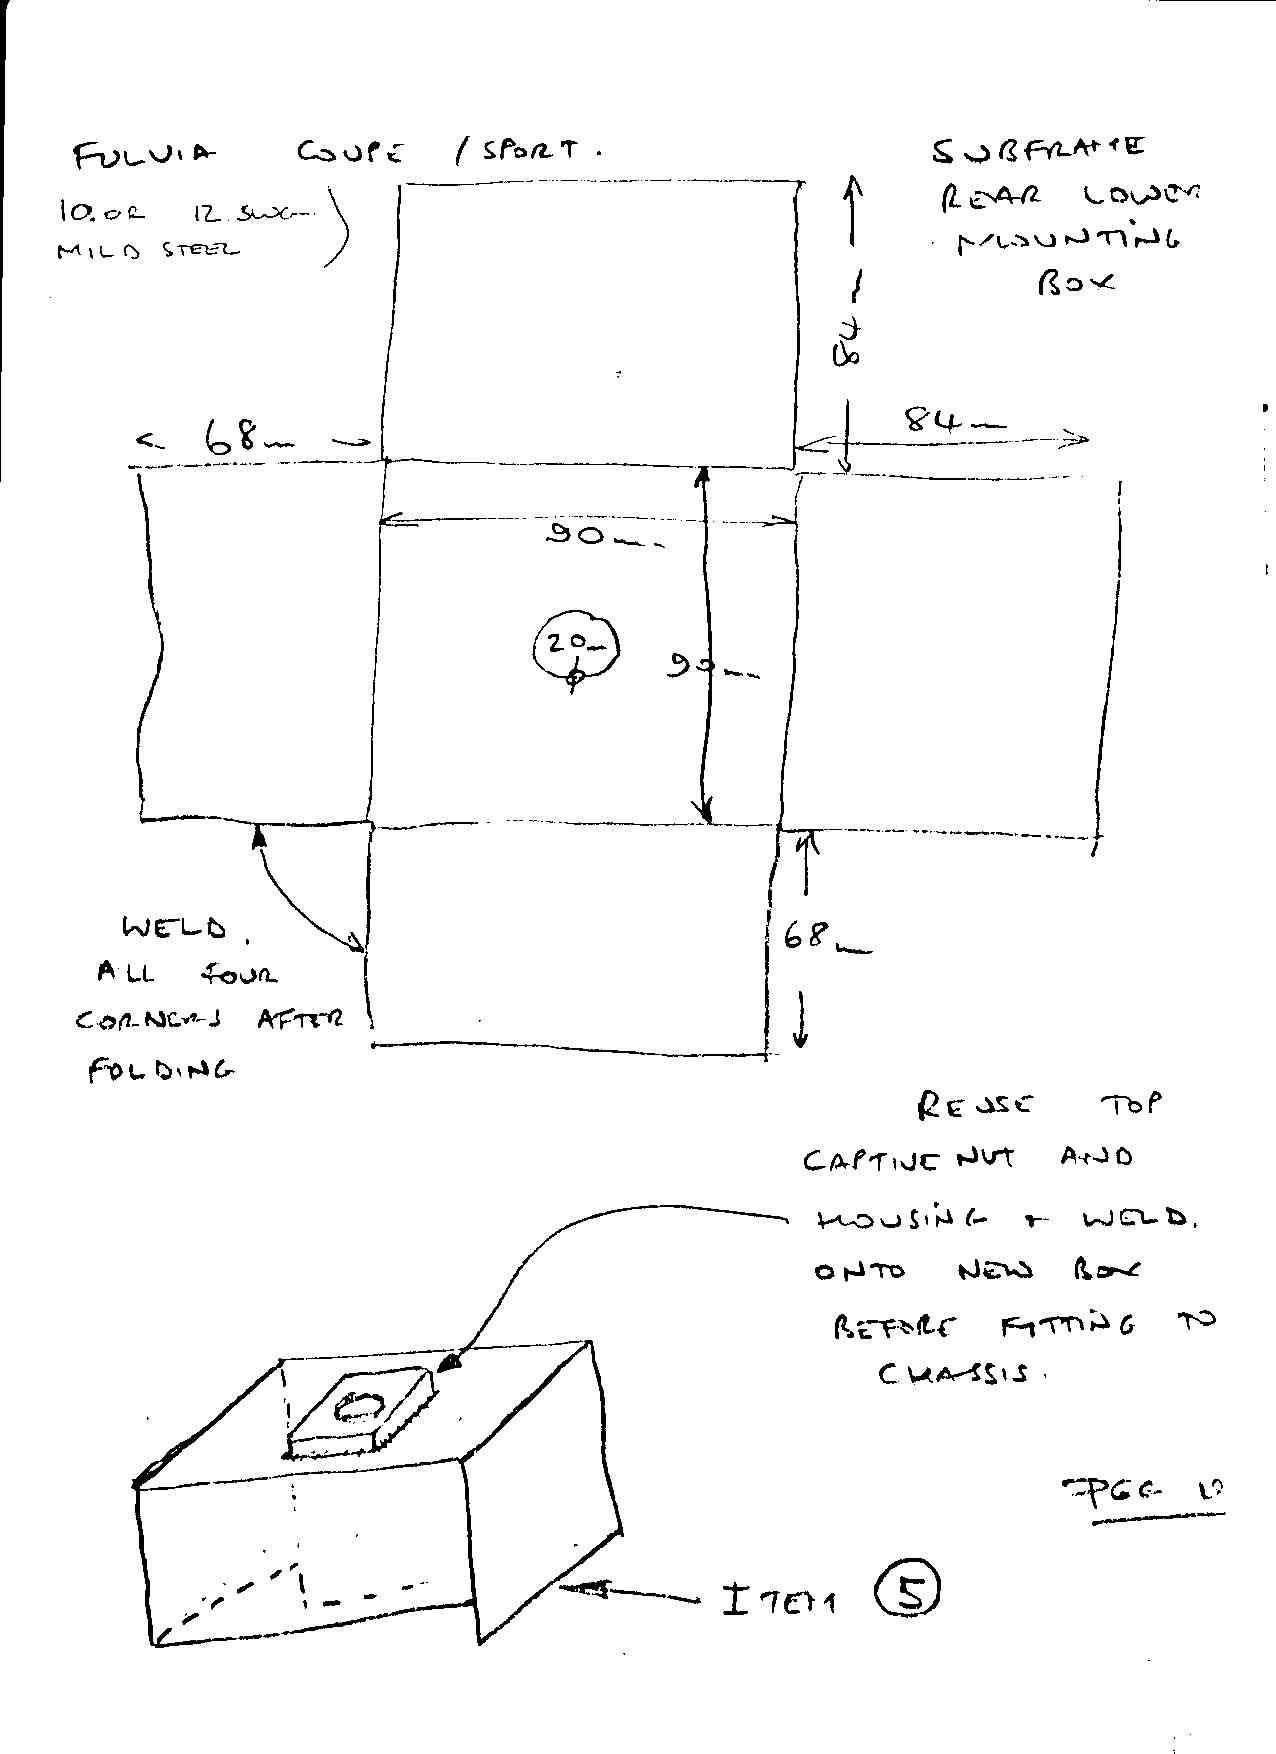 FULVIA COUPE / SPORT.
10. OR 12 SWG
MILD STEEL
SUBFRAME
REAR LOWER
MOUNTING
BOX
84
68m
84m
90m
20m
90m
68m
WELD.
ALL FOUR
CORNERS AFTER
FOLDING
REUSE TOP
CAPTIVE NUT AND
HOUSING + WELD.
ONTO NEW BOX
BEFORE FITTING TO
CHASSIS.
ITEM 5